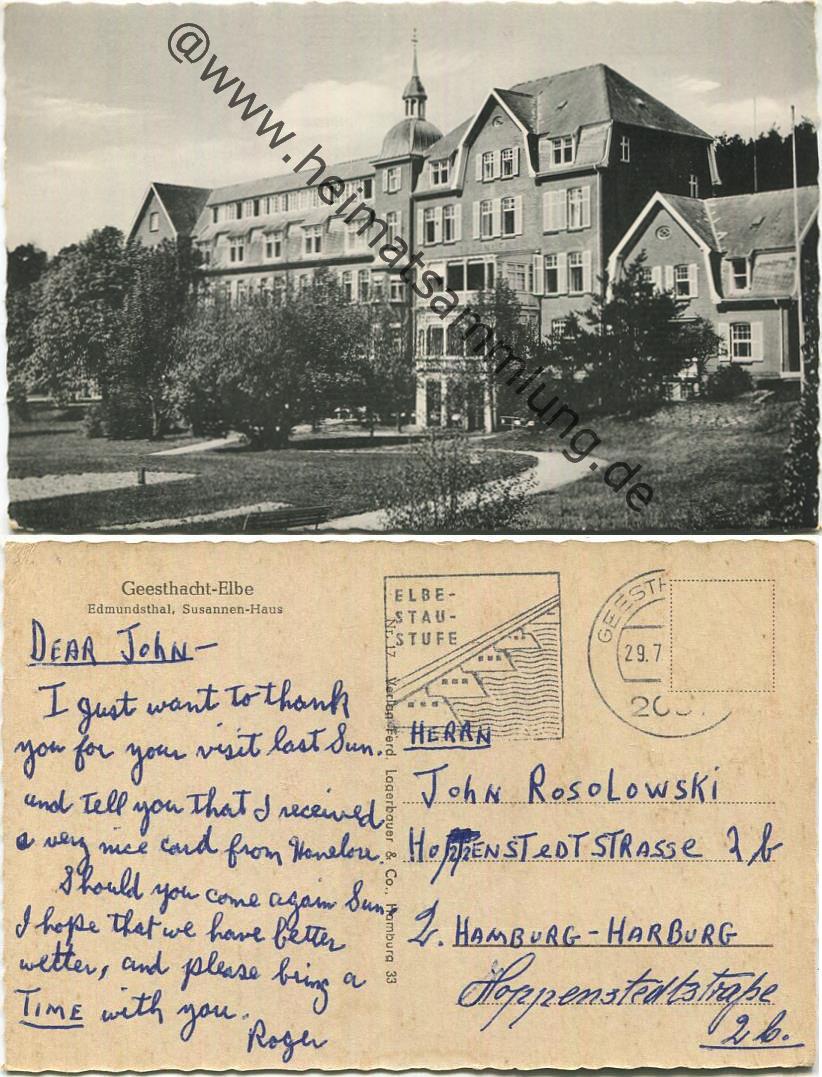 @www.heimatsammlung.de
Geesthacht-Elbe
Edmundsthal, Susannen-Haus
DEAR JOHN—
I just want to thank
you for your visit last Sun.
and tell you that I received
a very nice card from Hanelore.
Should you come again Sun.
I hope that we have better
wetter, and please bring a
TIME with you.
Roger
Nr. 17 Verlag Ferd. Lagerbauer & Co., Hamburg 33
ELBE-
STAU-
STUFE
GEESTH
29.7
HERRN
JOHN ROSOLOWSKI
HOPPENSTEDTSTRASSE 2 b
2. HAMBURG-HARBURG
Hoppenstedtstraße
2b.